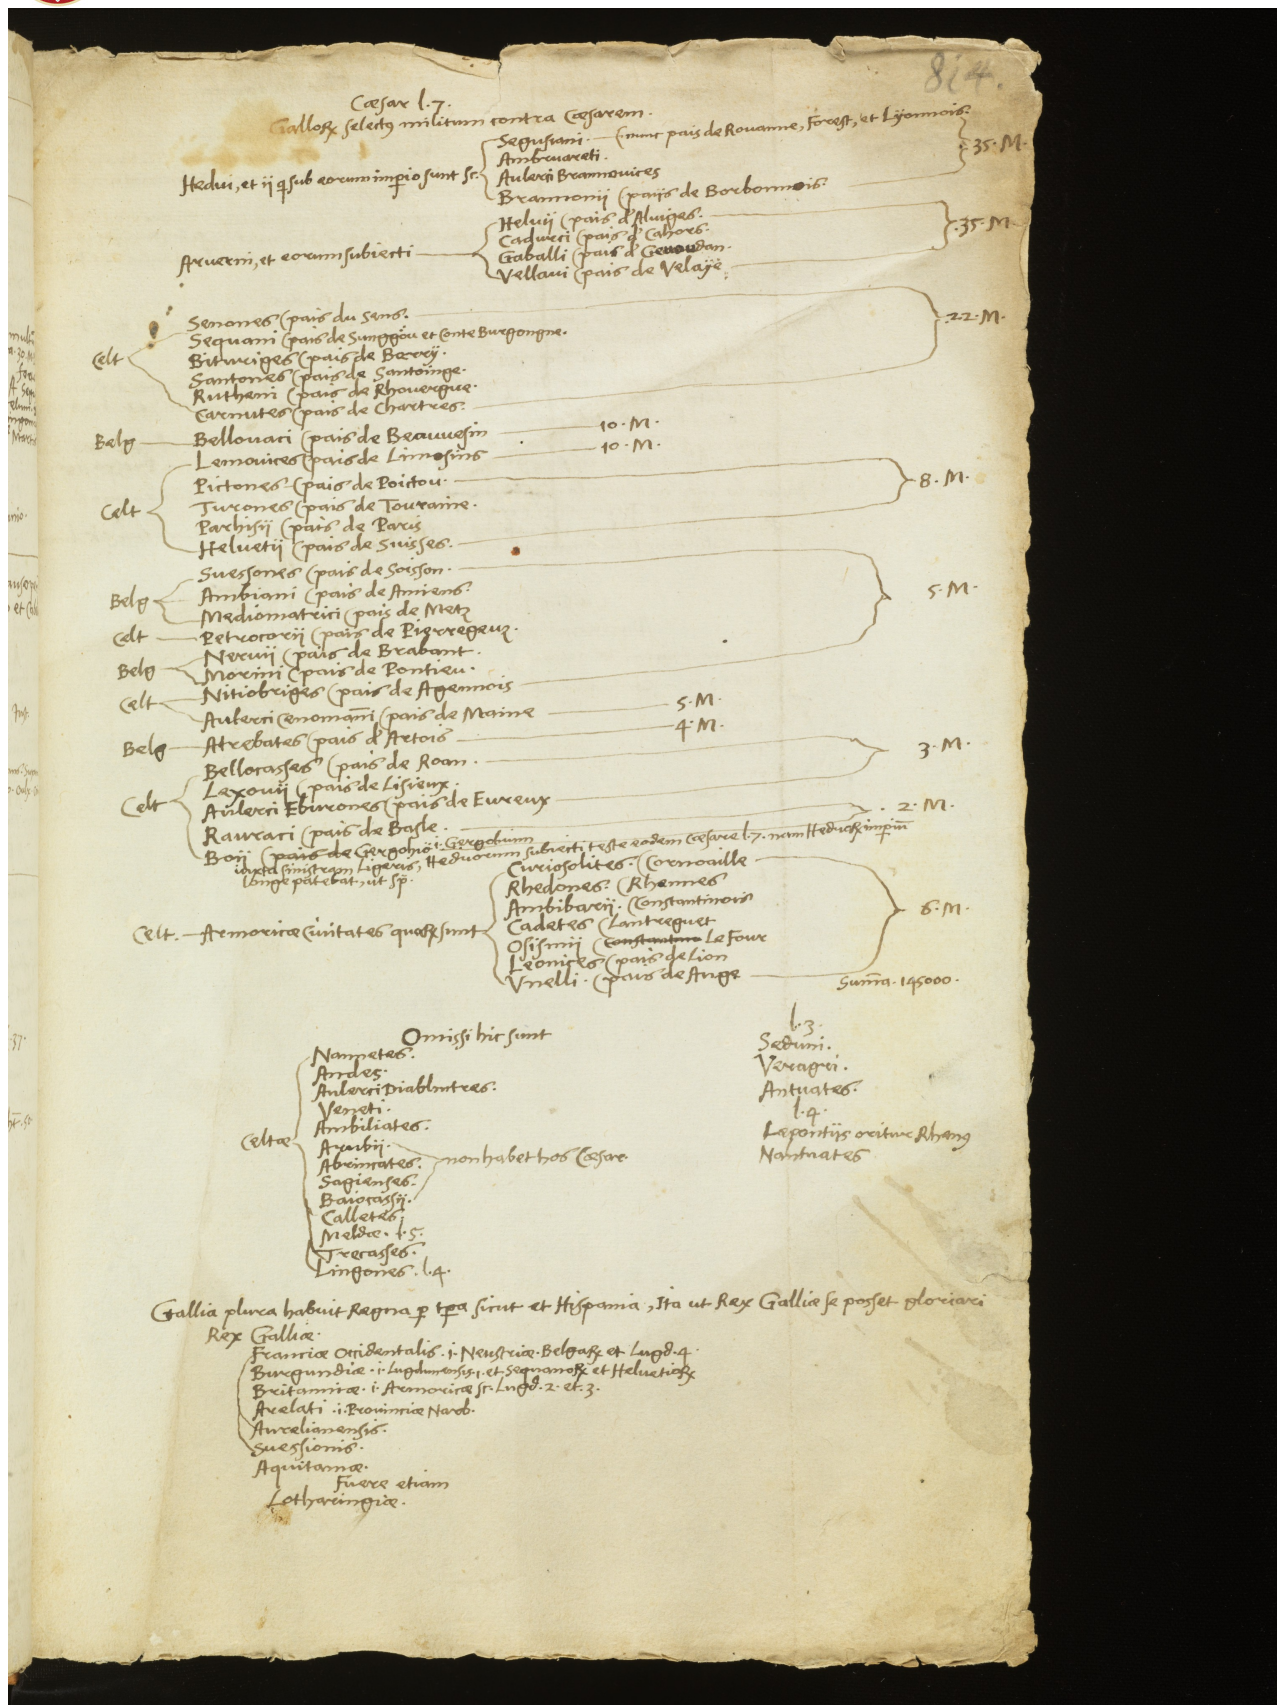 814.
Cæsar l.7.
Galloꝝ selectꝯ militum contra Cæsarem.
Hedui, et ij ꝗ sub eorum imꝑio sunt sc.
Segusiani. (nunc pais de Rouanne, Forest, et Lyonnois.
Ambruareti.
Aulerci Brannouices
Brannonij (paijs de Borbonnois.
35. M.
Aruerni, et eorum subiecti
Heluij (pais d'Aluiges.
Cadurci (pais d' Cahors.
Gaballi (pais d' Geuoudan.
Vellaui (pais de Velaÿe.
.35. M
Celt
Senones (pais du Sens.
Sequani (pais de Sunggöu et Conte Burgongne.
Bituriges (pais de Berrij.
Santones (pais de Santoinge.
Rutheni (pais de Rhouergue.
Carnutes (pais de Chartres.
.22. M.
Belg
Bellouaci (pais de Beauuesin
10. M.
Lemouices (pais de Limosins
10. M.
Celt
Pictones (pais de Poictou.
Turones (pais de Touraine.
Parhisij (pais de Paris
Heluetij (pais de Suisses.
8. M.
Belg
Suessones (pais de Soisson.
Ambiani (pais de Amiens.
Mediomatrici (pais de Metz
Celt
Petrocorij (pais de Pierregeuz.
Belg
Neruij (pais de Brabant.
Morini (pais de Pontieu.
Celt
Nitiobriges (pais de Agennois
5. M.
Aulerci Cenomañi (pais de Maine
5. M.
Belg
Atrebates (pais d' Artois
4. M.
Celt
Bellocasses (pais de Roan.
Lexouij (pais de Lisieux.
Aulerci Eburones (pais de Eureux
3. M.
Rauraci (pais de Basle.
Boij (pais de Gergohiö i. Gergobium
2. M.
iuxta sinistram Ligeris, Heduorum subiecti teste eodem Cæsare l.7. nam Heduoꝝ imperiũ
longe patebat, ut sp̃.
Celt. Armoricæ Ciuitates quaꝝ sunt
Curiosolites. (Cornoaille
Rhedones. (Rhennes
Ambibarij. (Constantinois
Cadetes (Lantreguet
Osismij (Constantino Le Four
Leonices (pais de Lion
Vnelli. (pais de Auge
6. M.
Sum̃a. 145000.
Omissi hic sunt
Celtæ
Nannetes.
Andes.
Aulerci Diablintres.
Veneti.
Ambiliates.
Arubij.
Abrincates.
Sagienses.
Baiocassij.
non habet hos Cæsar
Calletes.
Meldæ. l.5.
Trecasses.
Lingones. l.4.
l.3.
Seduni.
Veragri.
Antuates.
l.4.
Lepontijs oritur Rhenꝯ
Nantuates
Gallia plura habuit Regna ꝑ tꝑa sicut et Hispania, Ita ut Rex Galliæ se posset gloriari
Rex Galliæ.
Franciæ Occidentalis .i. Neustriæ. Belgaꝝ et Lugd. 4.
Burgundiæ .i. Lugdunensis. 1. et Sequanoꝝ et Heluetioꝝ
Britanniæ. i. Armoricæ sc. Lugd. 2. et. 3.
Arelati .i. Prouinciæ Narb.
Aurelianensis.
Suessionis.
Aquitaniæ.
Fuere etiam
Lotharingiæ.